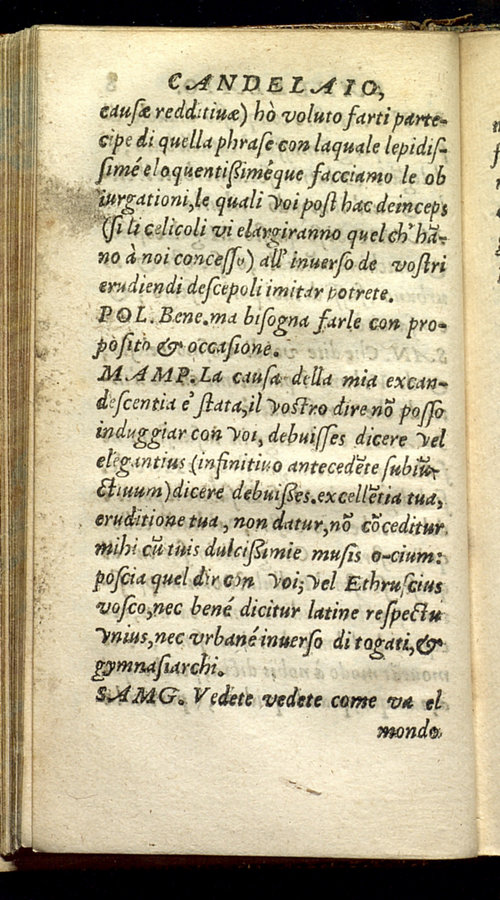 CANDELAIO,
causæ redditiuæ) hò voluto farti parte-
cipe di quella phrase con laquale lepidis-
simé eloquentißiméque facciamo le ob
iurgationi, le quali voi post hac deinceps
(si li celicoli vi elargiranno quel ch' hã-
no à noi concesso) all' inuerso de vostri
erudiendi descepoli imitar potrete.
POL. Bene. ma bisogna farle con pro-
posito & occasione.
MAMP. La causa della mia excan-
descentia e' stata, il vostro dire nõ posso
induggiar con voi, debuisses dicere vel
elegantius (infinitiuo antecedẽte subiũ-
ctiuum) dicere debuißes. excellẽtia tua,
eruditione tua, non datur, nõ cõceditur
mihi cũ tuis dulcißimie musis o-cium:
poscia quel dir con voi; vel Ethruscius
vosco, nec bené dicitur latine respectu
vnius, nec vrbané inuerso di togati, &
gymnasiarchi.
SAMG. Vedete vedete come va el
mondo